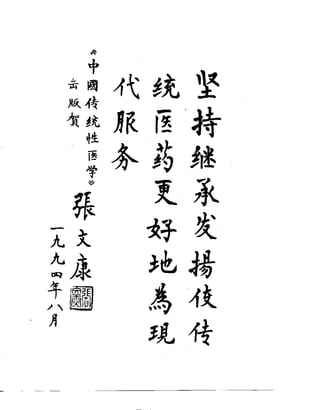 坚持继承发揚使传
统医药更好地為現
代服务
《中國传统性医学》
出版賀
張文康
一九九四年八月